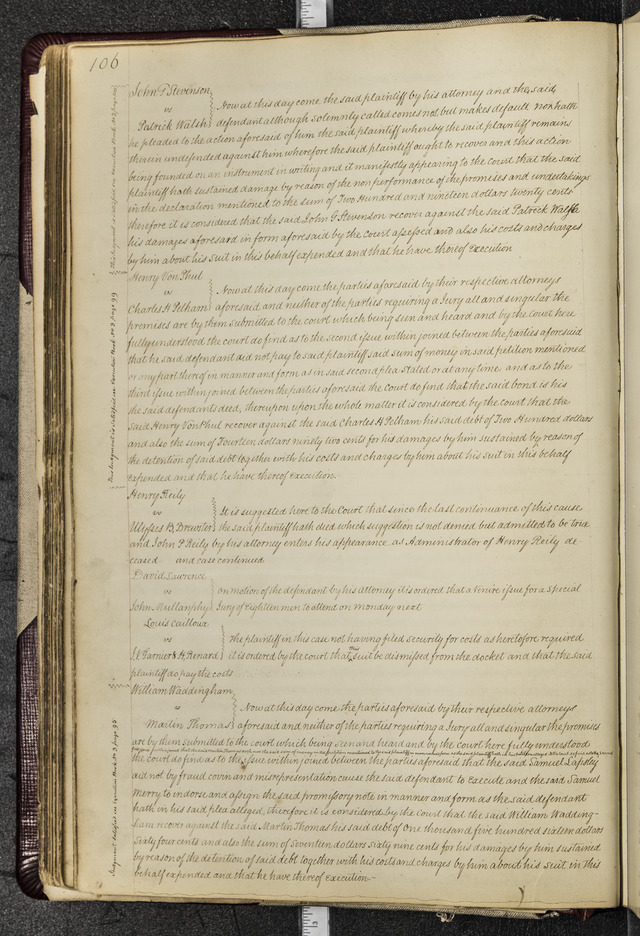 106
John G Stevenson
vs
Patrick Walsh
Now at this day come the said plaintiff by his attorney and the said
defendant although solemnly called comes not but makes default nor hath
he pleaded to the action aforesaid of him the said plaintiff whereby the said plaintiff remains
therein undefended against him wherefore the said plaintiff ought to recover and this action
being founded on an instrument in writing and it manifestly appearing to the court that the said
plaintiff hath sustained damage by reason of the non performance of the promises and undertakings
in the declaration mentioned to the sum of Two Hundred and nineteen dollars twenty cents
therefore it is considered that the said John G Stevenson recover against the said Patrick Walsh
his damages aforesaid in form aforesaid by the court assessed and also his costs and charges
by him about his suit in this behalf expended and that he have thereof Execution
Henry Von Phul
vs
Charles H Pelham
Now at this day come the parties aforesaid by their respective attorneys
aforesaid and neither of the parties requiring a Jury all and singular the
premises are by them submitted to the court which being seen and heard and by the court here
fully understood the court do find as to the second issue within joined between the parties aforesaid
that he said defendant did not pay to said plaintiff said sum of money in said petition mentioned
or any part thereof in manner and form as in said second plea stated or at any time and as to the
third issue within joined between the parties aforesaid the court do find that the said bond is his
the said defendants deed, thereupon upon the whole matter it is considered by the court that the
said Henry Von Phul recover against the said Charles H Pelham his said debt of Two Hundred dollars
and also the sum of Fourteen dollars ninety two cents for his damages by him sustained by reason of
the detention of said debt together with his costs and charges by him about his suit in this behalf
expended and that he have thereof execution.
This Judgment is satisfied on Execution Book No 3, page 99
Henry Reily
vs
Ulysses B. Brewster
It is suggested here to the Court that since the last continuance of this cause
the said plaintiff hath died which suggestion is not denied but admitted to be true
and John P Reily by his attorney enters his appearance as Administrator of Henry Reily de-
ceased and case continued
David Lawrence
vs
John Mullanphy
On motion of the defendant by his attorney it is ordered that a venire issue for a Special
Jury of Eighteen men to attend on Monday next
Louis Cailloua
vs
J. Garnier & H. Renard
The plaintiff in this case not having filed security for costs as heretofore required
it is ordered by the court that this suit be dismissed from the docket and that the said
plaintiff do pay the costs
William Waddingham
vs
Martin Thomas
Now at this day come the parties aforesaid by their respective attorneys
aforesaid and neither of the parties requiring a Jury all and singular the premises
are by them submitted to the court which being seen and heard and by the court here fully understood
the court do find as to the issue within joined between the parties aforesaid that the said Samuel Lapsley
did not by fraud covin and misrepresentation cause the said defendant to Execute and the said Samuel
Merry to indorse and assign the said promissory note in manner and form as the said defendant
hath in his said plea alleged, therefore it is considered by the court that the said William Wadding-
ham recover against the said Martin Thomas his said debt of One thousand five hundred sixteen dollars
sixty four cents and also the sum of Seventeen dollars sixty nine cents for his damages by him sustained
by reason of the detention of said debt together with his costs and charges by him about his suit in this
behalf expended and that he have thereof execution
Judgment satisfied on Execution Book No 3, page 98